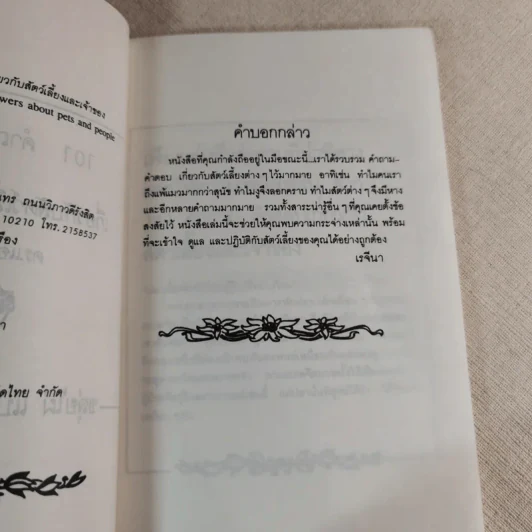 ยวกับสัตว์เลี้ยงและเจ้าของ
wers about pets and people
ทร ถนนวิภาวดีรังสิต
10210 โทร. 2158537
รือง
า
ดไทย จำกัด
คำบอกกล่าว
หนังสือที่คุณกำลังถืออยู่ในมือขณะนี้...เราได้รวบรวม คำถาม-
คำตอบ เกี่ยวกับสัตว์เลี้ยงต่าง ๆ ไว้มากมาย อาทิเช่น ทำไมคนเรา
ถึงแพ้แมวมากกว่าสุนัข ทำไมงูจึงลอกคราบ ทำไมสัตว์ต่าง ๆ จึงมีหาง
และอีกหลายคำถามมากมาย รวมทั้งสาระน่ารู้อื่น ๆ ที่คุณเคยตั้งข้อ
สงสัยไว้ หนังสือเล่มนี้จะช่วยให้คุณพบความกระจ่างเหล่านั้น พร้อม
ที่จะเข้าใจ ดูแล และปฏิบัติกับสัตว์เลี้ยงของคุณได้อย่างถูกต้อง
เรจีนา